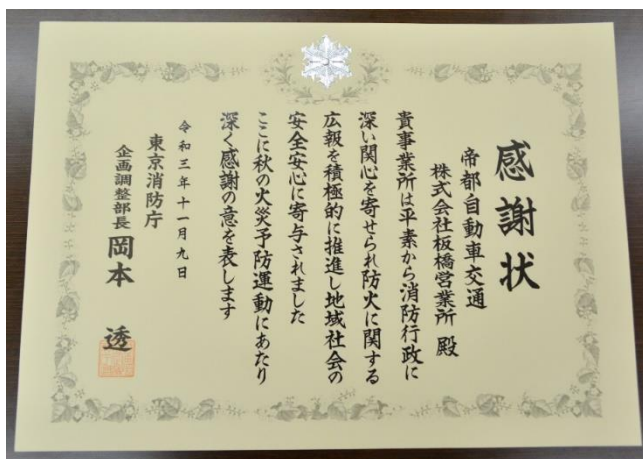 感謝状
帝都自動車交通
株式会社板橋営業所 殿
貴事業所は平素から消防行政に
深い関心を寄せられ防火に関する
広報を積極的に推進し地域社会の
安全安心に寄与されました
ここに秋の火災予防運動にあたり
深く感謝の意を表します
令和三年十一月九日
東京消防庁
企画調整部長 岡本 透